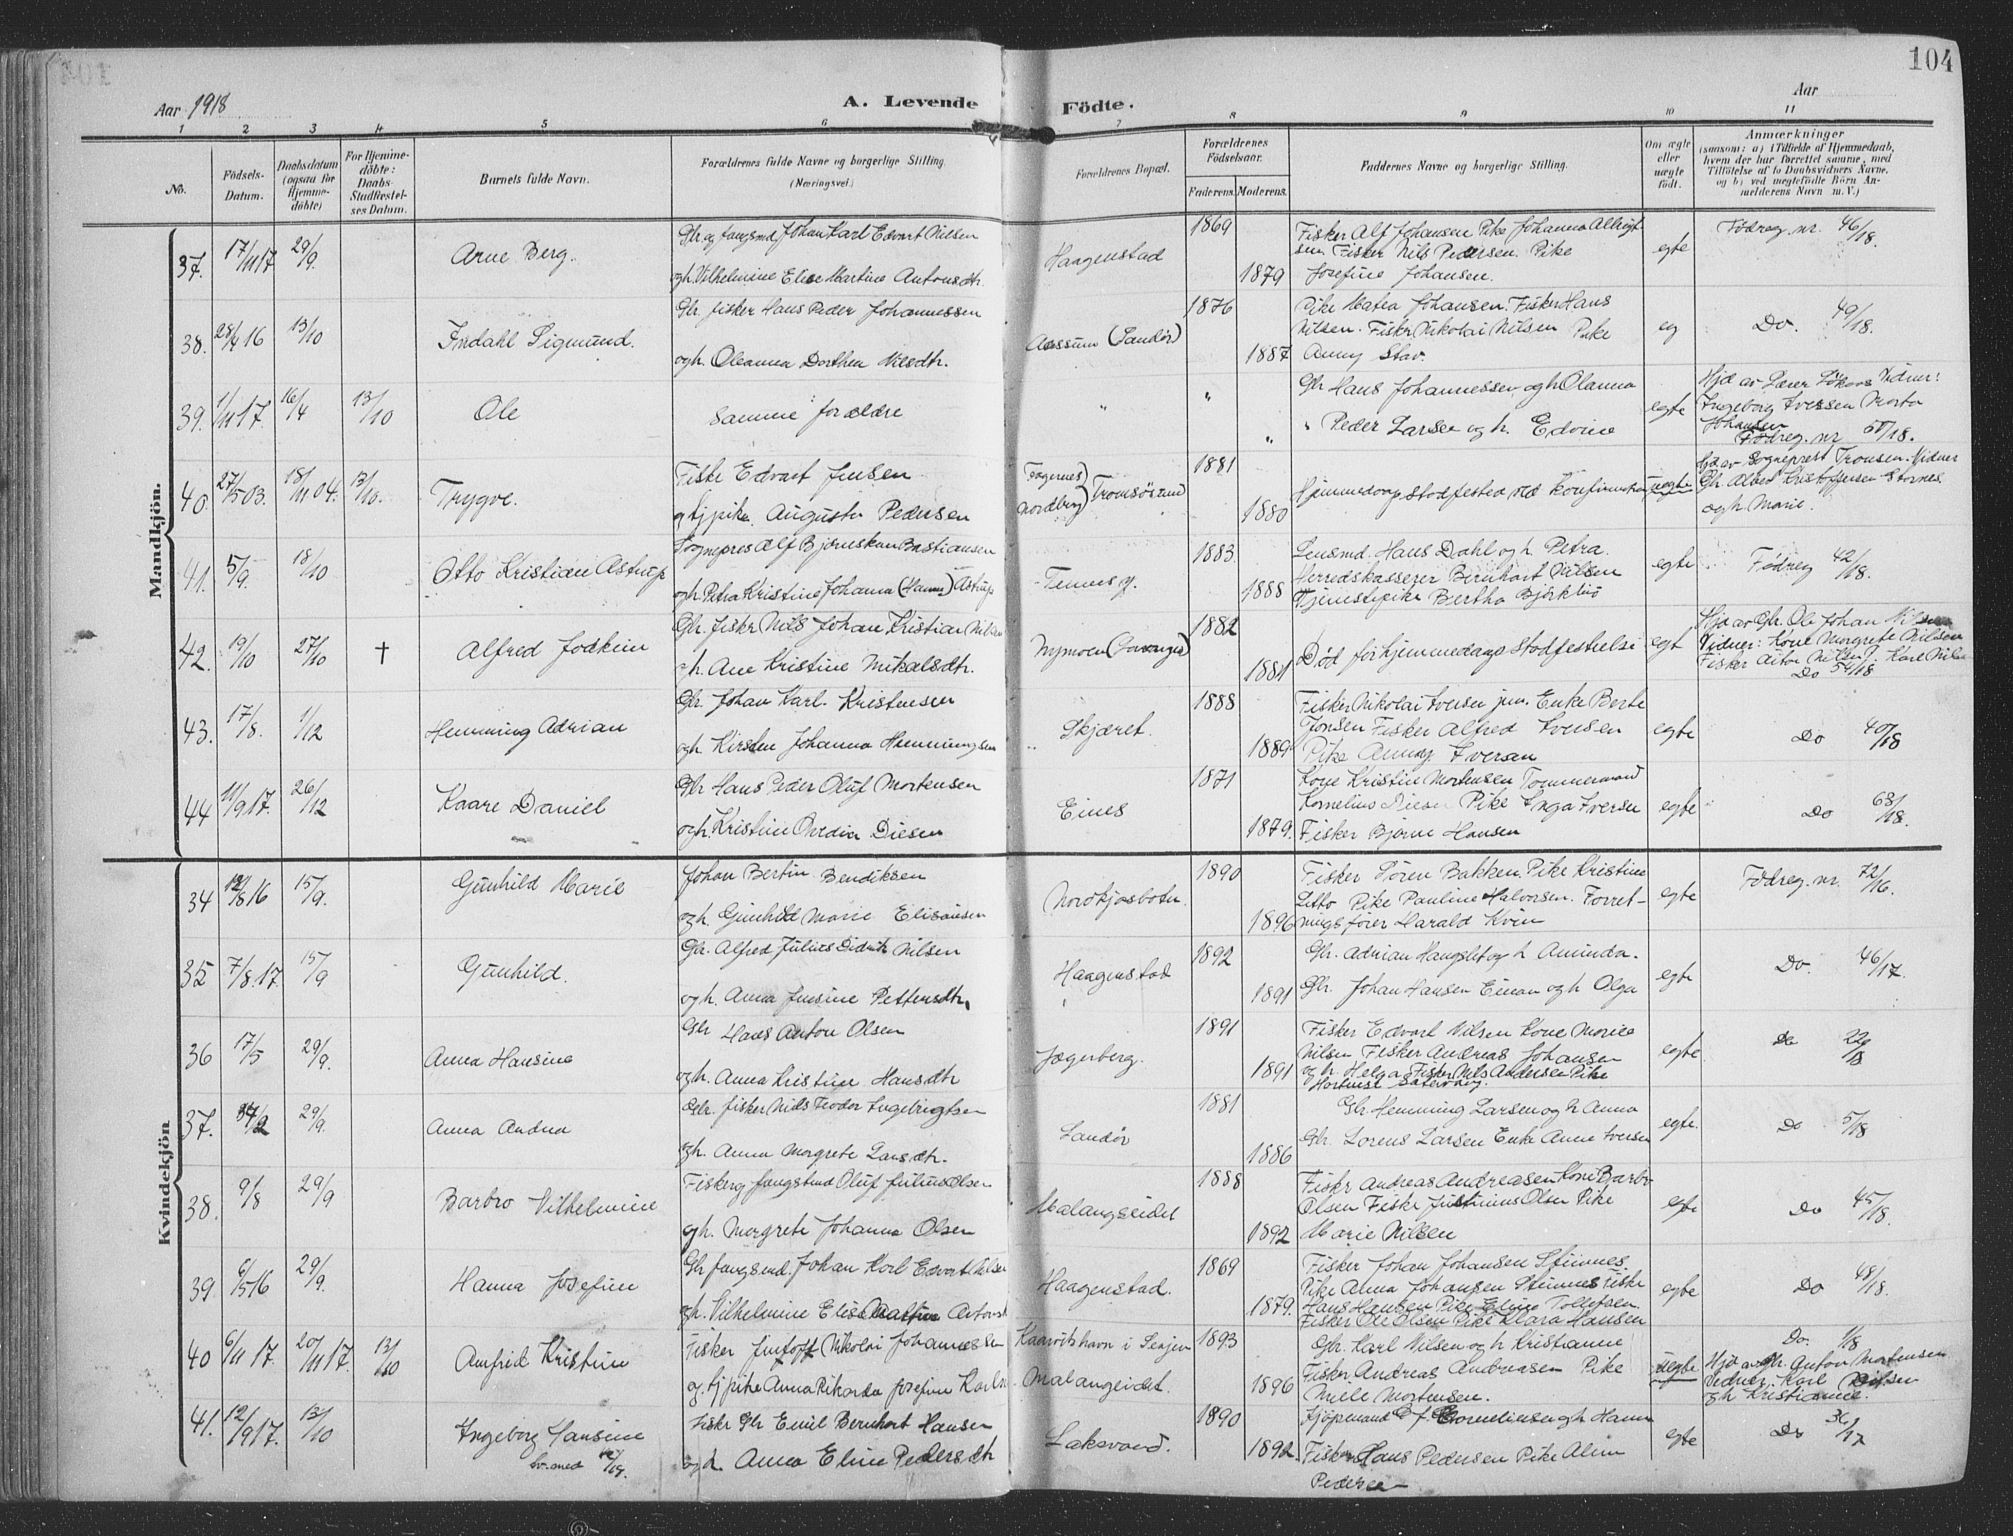 104
Aar 1918
A. Levende Födte.
Aar
1 2 3 4 5 6 7 8 9 10 11
No.
Födsels-Datum.
Daabsdatum (ogsaa for Hjemme-döbte)
For Hjemme-döbte: Daabs-Stadfæstel-ses Datum.
Barnets fulde Navn.
Forældrenes fulde Navne og borgerlige Stilling. (Næringsvei.)
Forældrenes Bopæl.
Forældrenes Födselsaar.
Faderens. Moderens.
Faddernes Navne og borgerlige Stilling.
Om ægte eller uægte födt.
Anmærkninger (saasom: a) i Tilfælde af Hjemmedaab, hvem der har forrettet samme, med Tilföielse af to Daabsvidners Navne, og b) ved uægtefödte Börn An-melderens Navn m. V.)
Mandkjön.
37. 17/11 17 29/9 Arne Berg.
Gbr. og fangsmd Johan Karl Edvart Nilsen
ogh. Vilhelmine Elise Martine Antonsdtr.
Haagenstad 1869 1879
Fisker Alf Johansen Pike Johanna Albrigt
sen Fisker Nils Pedersen. Pike
Josefine Johansen.
egte
Födreg. nr. 46/18.
38. 28/4 16 13/10 Indahl Sigmund.
Gbr. fisker Hans Peder Johannessen
ogh. Oleanna Dorthea Nilsdtr.
Aassum (Sandör) 1876 1887
Pike Matea Johansen. Fisker Hans
Nilsen. Fiskr Nikolai Nilsen Pike
Anny Stav.
eg
Do. 49/18.
39. 1/11 17. 16/4 13/10 Ole
Samme forældre
" " "
Gbr Hans Johannessen ogh Olanna
" Peder Larsen og h. Edvine
egte
Hjd av Lærer Vidner:
Ingeborg Iversen Marta
Johansen
Födreg. nr 51/18.
40. 27/5 03. 18/11 04. 13/10. Trygve.
Fisker Edvart Jensen
og tj pike. Augusta Pedersen
Tromsösund
1881 1880
Hjemmedaap stadfested ved Konfirmation
uegte
Hjd av Sogneprest Tronsen. Vidner
Gbr. Albert Kristoffersen Stornes.
ogh Marie.
41. 5/9. 18/10 Otto Kristian Astrup
Sognepres Alf Björnskau Bastiansen
ogh. Petra Kristine Johanna (Hanna) Astrup
Tennes g. 1883 1888
Lensmd. Hans Dahl og h. Petra.
Herredskasserer Bernhart Nilsen
Tjenestepike Bertha Björklid
egte
Födreg 42/18.
42. 19/10 27/10 † Alfred Jodkim
Gbr. fiskr Nils Johan Kristian Nilsen
ogh. Ane Kristine Mikalsdtr.
Nymoen 1882 1881
Död för hjemmedaaps Stadfestelse
egt
Hjd av Gbr. Ole Johan Nilsen
Vidner: Kone Margrete Nilsen
Fisker Karl Nilsen
Do 54/18.
43. 17/8. 1/12 Hemming Adrian
Gbr. Johan Karl. Kristensen
ogh. Kirsten Johanna Hemmingsen
Skjæret. 1888 1889
Fisker Nikolai Iversen jun. Enke Berte
Jonsen Fisker Alfred Iversen
Pike Anny Iversen
egte
Do 40/18
44 11/9 17. 26/12 Kaare Daniel
Gbr Hans Peder Oluf Mortensen
ogh. Kristine Diesen
Eines 1871 1879.
Kone Kristine Mortensen Tommermand
Kornelius Diesen Pike Inga Iversen
Fisker Bjarne Hansen
egte
Do 63/18.
Kvindekjön
34 12/8 16 15/9. Gunhild Marie
Johan Bertin Bendiksen
ogh. Gunhild Marie Elisausen
Nordkjosbotn. 1890 1896
Fisker Sören Bakken. Pike Kristine
Pike Pauline Halvorsen. Forret-
ningsförer Harald Kvin
egte
Födreg. nr. 72/16.
35 7/8. 17. 15/9 Gunhild.
Gbr. Alfred Julius Didrik Nilsen
ogh. Anna Jensine Pettersdtr.
Haagenstad 1892 1891
Gbr. Adrian Haugset og h Aminda.
Gbr. Johan Hansen Einan og h Olga
egte
Do. 46/17.
36 17/5 29/9. Anna Hansine
Gbr Hans Anton Olsen
ogh. Anna Kristine Hansdtr
Jægerberg. 1891 1891
Fisker Edvart Nilsen Kone Marie
Nilsen Fisker Andreas Johansen
og h. Helga Fisker Nils Andersen Pike
egte
Do 22/18
37. 29/9. Anna Andrea
Gbr. fisker Nils Teodor Ingebrigtsen
ogh. Anna Margrete Larsdtr.
Sandör 1881 1886
Gbr. Hemming Larsen og h Anna
Gbr. Lorens Larsen Enke Anne Iversen
egte.
Do 5/18
38. 9/8 29/9 Barbro Vilhelmine
Fisker og fangstmd Oluf Julius Olsen
ogh. Margrete Johanna Olsen
Malangseidet 1888 1892
Fiskr Andreas Andreasen Kone Barbro
Olsen Fisker Justinius Olsen Pike
Marie Nilsen
egte
Do 45/18.
39. 6/5 16 29/9. Hanna Josefine
Gbr fangsmd. Johan Karl Edvart Nilsen
ogh. Vilhelmine Elise Martine Antonsdtr
Haagenstad. 1869 1879.
Fisker Johan Johansen Stennes.
Pike Anna Johansen Stennes Fisker
Hans Hansen Pike Eline Tollefsen
Fisker Ole Olsen Pike Klara Hansen
egte
Do 48/18.
40 6/11 17. 20/11 17. 13/10 Anfrid Kristine
Fisker Jentoft Nikolai Johannessen
og tj pike Anna Rikarda Josefine Karls
Kaarvikshavn i Senjen
Malangeidet. 1893 1896
Gbr. Karl Nilsen og h Kristianne
Fisker Andreas Andreasen Pike
Mille Mortensen.
uegte
Do. 1/18
Hjd av Gbr. Anton Mortensen
Vidner: Karl Nilsen
og h Kristianne.
41. 12/9 17. 13/10 Ingeborg Hansine
Fiskr Gbr Emil Bernhart Hansen
og h. Anna Eline Pedersdtr
Laksvand. 1890 1892.
Kjöpmand Corneliusen og h Hanna
Fisker Hans Pedersen Pike Alma
Pedersen
egte
Do 36/17